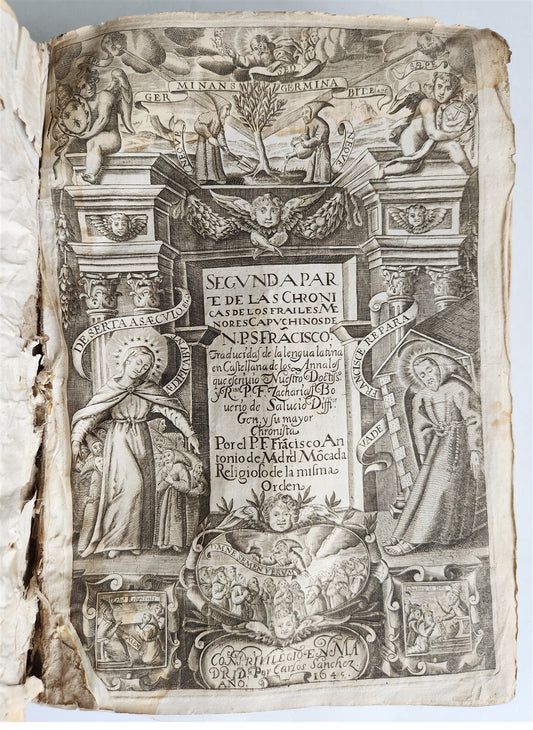 GER MINANS GERMINA BIT
SEGVNDA PAR
TE DE LAS CHRONI
CAS DE LOS FRAILES ME
NORES CAPVCHINOS DE
N.P.S FRÃCISCO.
Traducidas de la lengua latina
en Castellana de los Annales
que escriuio Nuestro Doctiss.º
y R.mo P.F. Zacharias Bo
uerio de Salucio Diffi.or
Gen. y su mayor
Chronista
Por el P.F. Frãcisco An
tonio de Mdrid Mõcada
Religioso de la misma
Orden
DESERTA SAECVLO
VADE FRANCISCE REPARA
OMNE SEMEN VERVM
CON PRIVILEGIO EN MA
DRID Por Carlos Sanchez
AÑO. 164